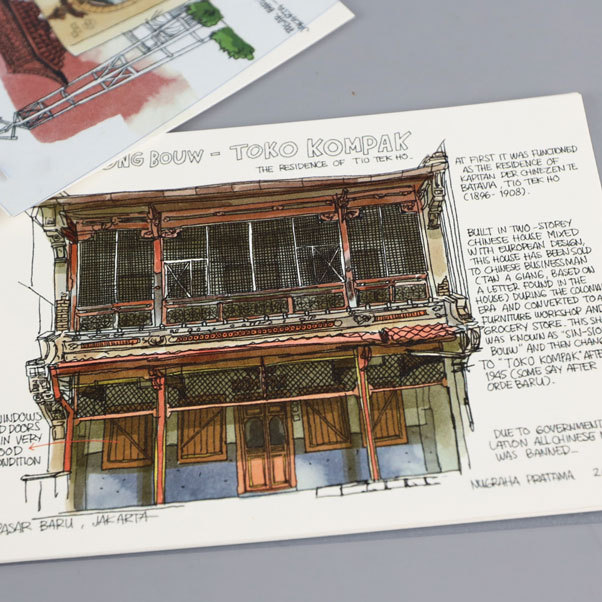 ONG BOUW - TOKO KOMPAK
THE RESIDENCE OF TIO TEK HO.
AT FIRST IT WAS FUNCTIONED
AS THE RESIDENCE OF
KAPITAN DER CHINEZEN TE
BATAVIA, TIO TEK HO
(1896-1908).
BUILT IN TWO-STOREY
CHINESE HOUSE MIXED
WITH EUROPEAN DESIGN,
THIS HOUSE HAS BEEN SOLD
TO CHINESE BUSINESSMAN
(TAN A GIANG, BASED ON
A LETTER FOUND IN THE
HOUSE) DURING THE COLONIA
ERA AND CONVERTED TO A
FURNITURE WORKSHOP AND
GROCERY STORE. THIS SH
WAS KNOWN AS "SIN-SIO
BOUW" AND THEN CHANG
TO "TOKO KOMPAK" AFTE
1945 (SOME SAY AFTER
ORDE BARU).
DUE TO GOVERNMENT
LATION ALL CHINESE N
WAS BANNED...
NUGRAHA PRATAMA 2
INDOWS
D DOORS
IN VERY
OOD
ONDITION
PASAR BARU, JAKARTA